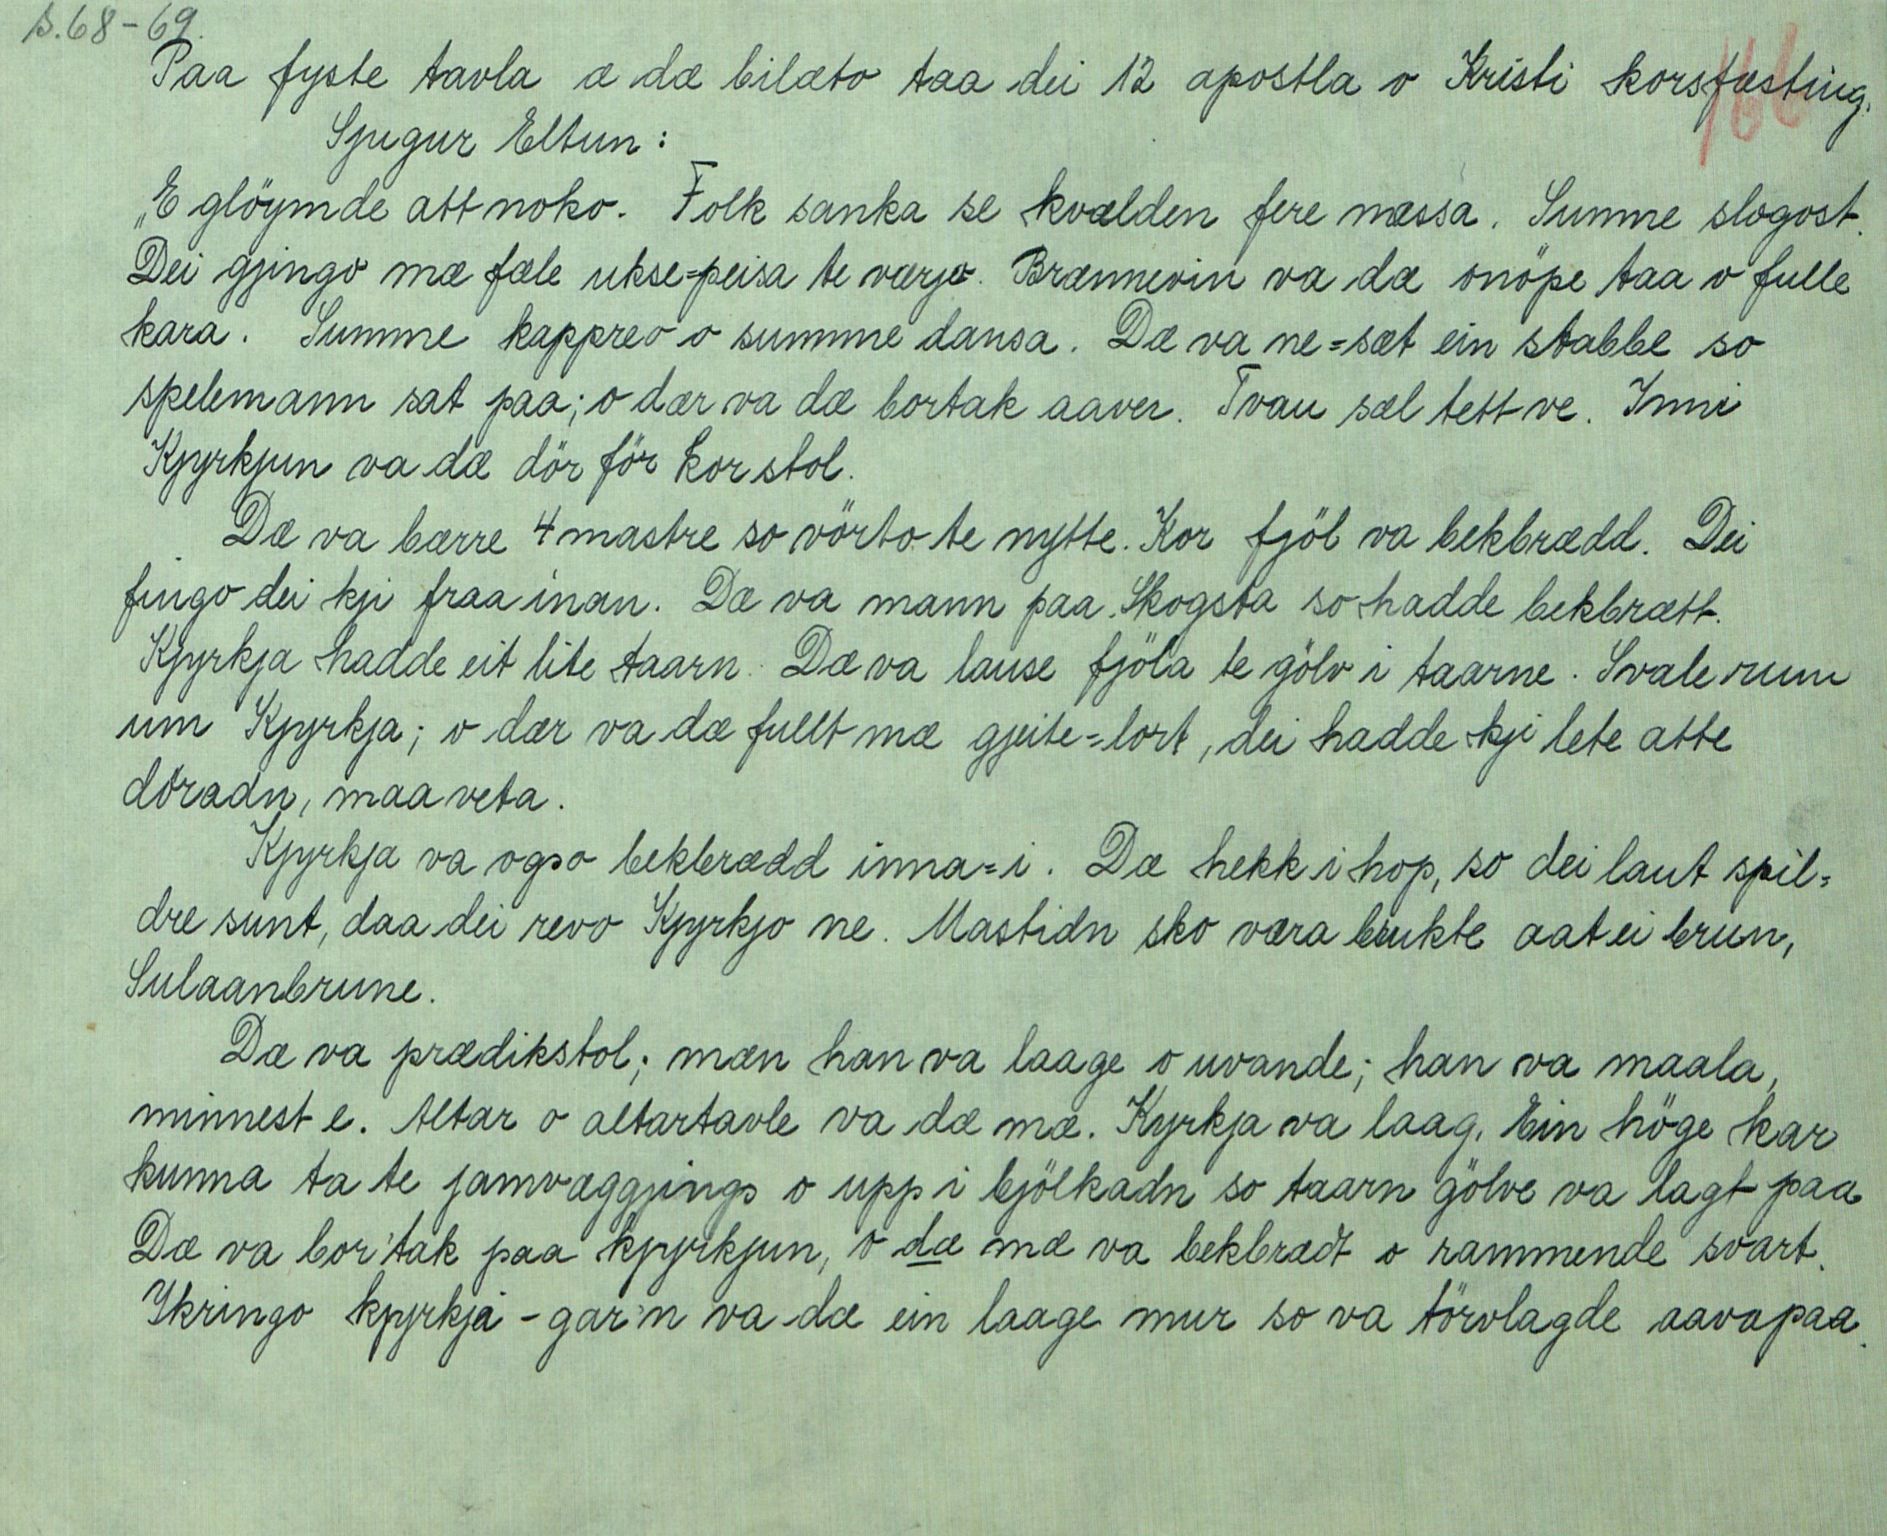 s.68-69.
Paa fyste tavla æ dæ bilæto taa dei 12 apostla o Kristi korsfæsting.
166
Sjugur Eltun:
„E glöymde att noko. Folk sanka se kvælden fere mæssa. Summe slogost.
Dei gjingo mæ fæle ukse=peisa te værjo. Brænnevin va dæ onöpe taa o fulle
kara. Summe kappreo o summe dansa. Dæ va ne=sæt ein stabbe so
spelemann sat paa; o dær va dæ bortak aaver. Tvau sæl tett ve. Inni
Kjyrkjun va dæ dör för kor stol.
Dæ va bærre 4 mastre so vörto te nytte. Kor fjöl va bekbrædd. Dei
fingo dei kji fraa inan. Dæ va mann paa Skogsta so hadde bekbrætt.
Kjyrkja hadde eit lite taarn. Dæ va lause fjöla te gölv i taarne. Svale rum
um Kjyrkja; o dær va dæ fullt mæ gjeite=lort, dei hadde kji lete atte
döradn, maaveta.
Kjyrkja va ogso bekbrædd inna=i. Dæ hekk i hop, so dei laut spil=
dre sunt, daa dei revo Kjyrkjo ne. Mastidn sko væra brukte aat ei brun,
Sulaanbrune.
Dæ va prædikstol; mæn han va laage o uvande; han va maala,
minnest e. Altar o altartavle va dæ mæ. Kyrkja va laag. Ein höge kar
kunna ta te jamvæggjings o upp i bjölkadn so taarn gölve va lagt paa
Dæ va bor'tak paa kjyrkjun, o dæ mæ va bekbrædt o rammende svart.
Ikringo kjyrkja-gar'n va dæ ein laage mur so va törvlagde aavapaa.